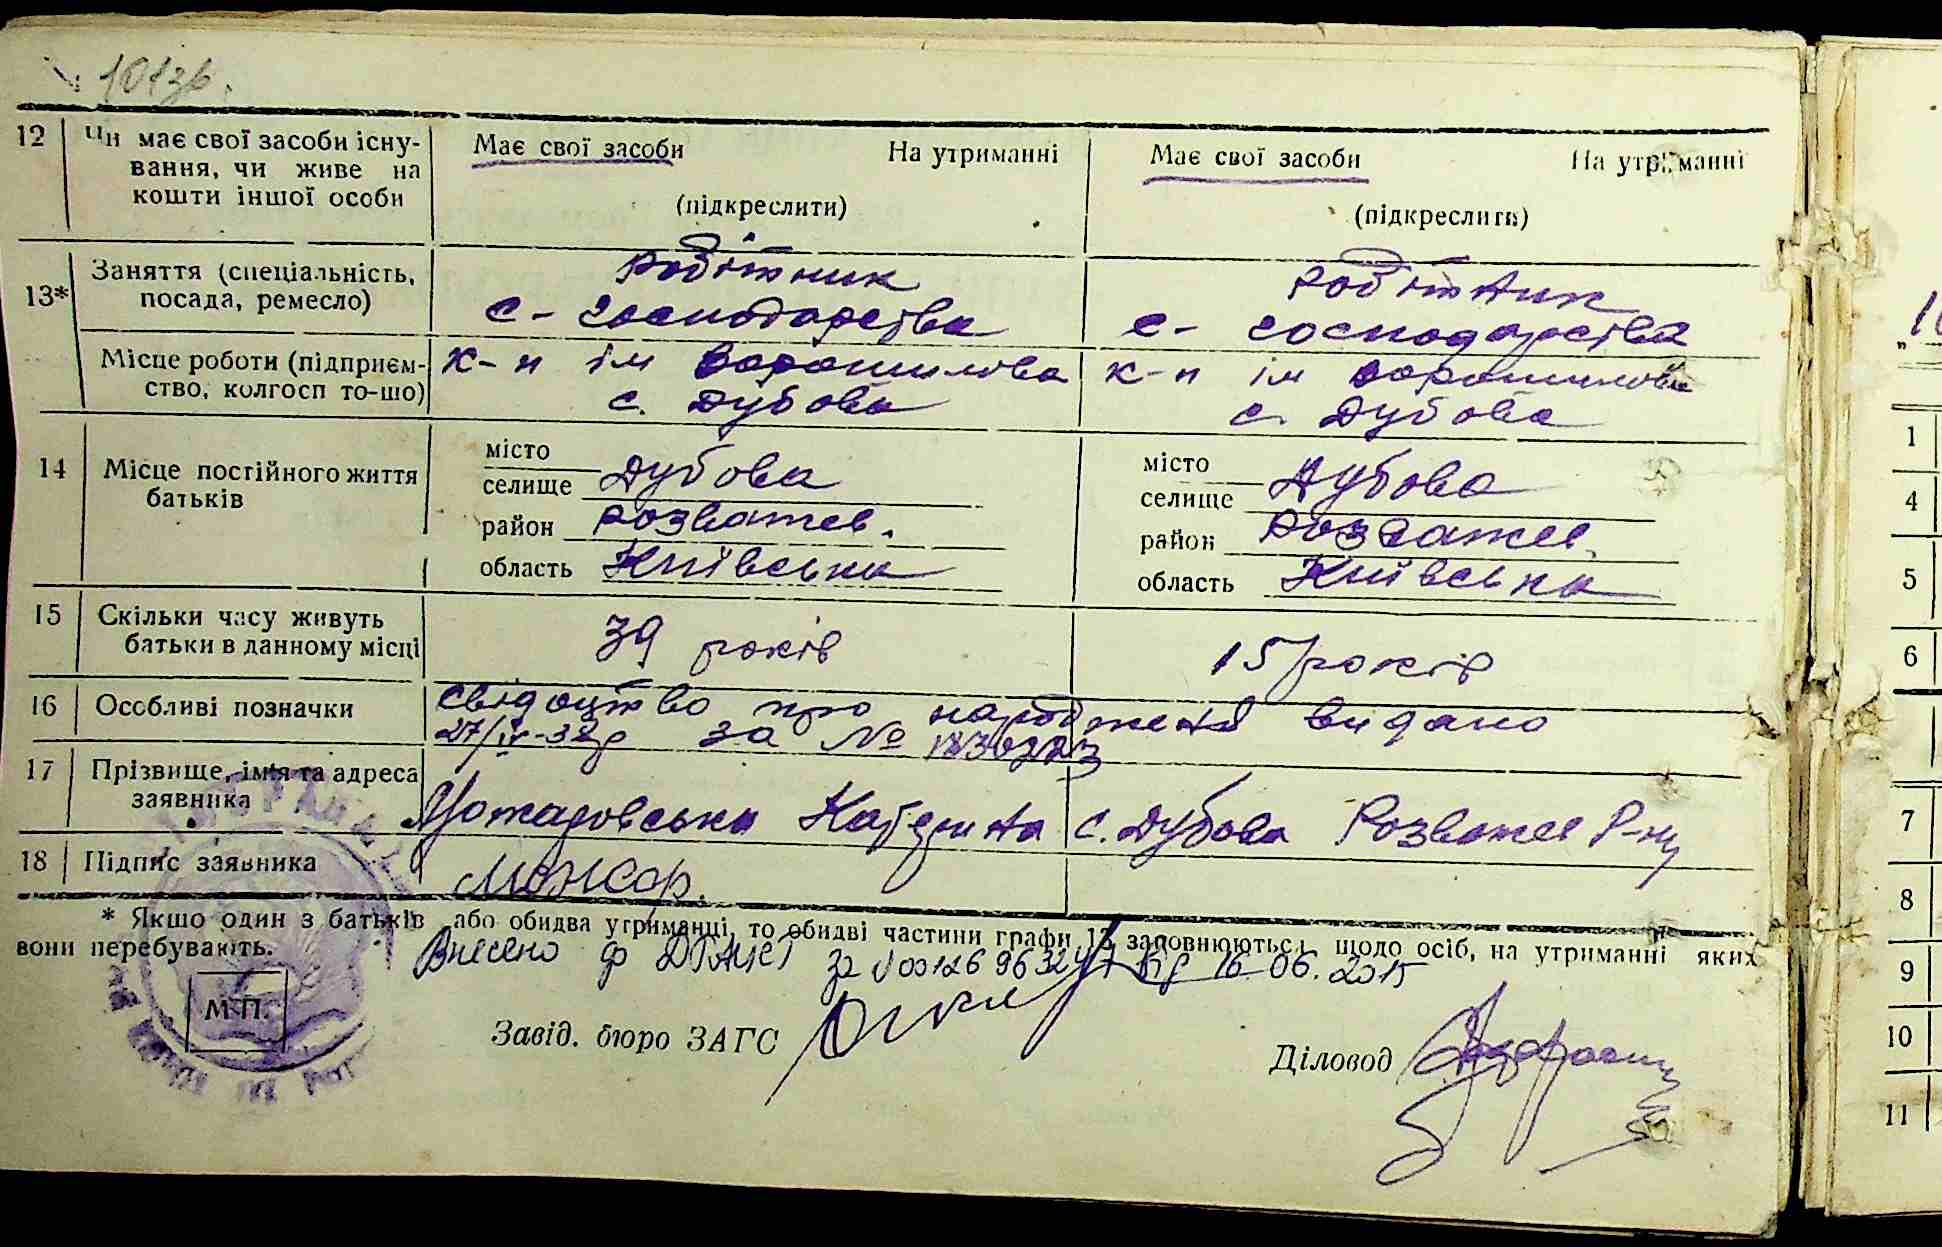 12 Чи має свої засоби існу-
вання, чи живе на
кошти іншої особи
Має свої засоби На утриманні
(підкреслити)
Має свої засоби На утриманні
(підкреслити)
13* Заняття (спеціальність,
посада, ремесло)
робітник
с-господарства
робітник
с-господарства
Місце роботи (підприєм-
ство, колгосп то-що)
к-п ім Ворошилова
с. Дубова
к-п ім Ворошилова
с. Дубова
14 Місце постійного життя
батьків
місто
селище Дубова
район Розважев.
область Київська
місто
селище Дубова
район Розважев.
область Київська
15 Скільки часу живуть
батьки в данному місці
39 років
15 років
16 Особливі позначки
свідоцтво про народження видано
27/IV-38р за №
17 Прізвище, ім'я та адреса
заявника
с. Дубова Розважев р-ну
18 Підпис заявника
* Якщо один з батьків або обидва утриманці, то обидві частини графи 13 заповнюються щодо осіб, на утриманні яких
вони перебувають.
Внесено ф ДРАЦСГ
за 16.06.2015
М.П.
Завід. бюро ЗАГС
Діловод
1
4
5
6
7
8
9
10
11